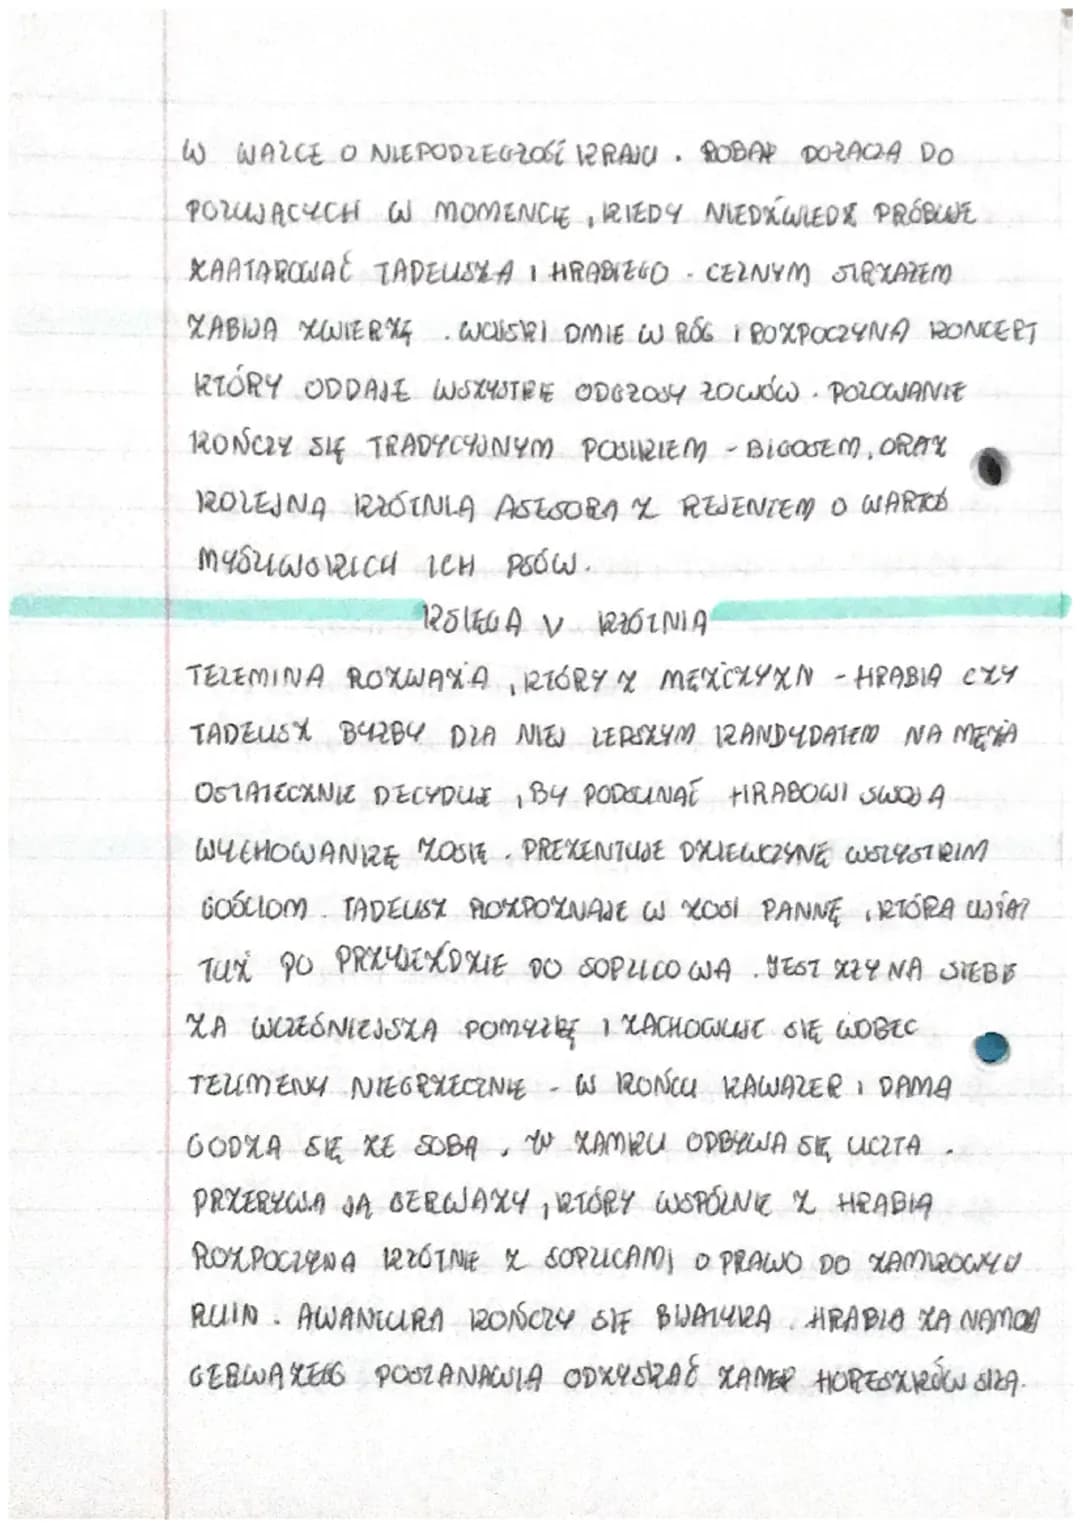 W WALCE O NIEPODLEGŁOŚĆ KRAJU. ROBAK DOŁĄCZA DO
POLUJĄCYCH W MOMENCIE, KIEDY NIEDŹWIEDŹ PRÓBUJE
ZAATAKOWAĆ TADEUSZA I HRABIEGO. CELNYM STRZAŁEM
ZABIJA ZWIERZĘ. WOJSKI DMIE W RÓG I ROZPOCZYNA KONCERT
KTÓRY ODDAJE WSZYSTKIE ODGŁOSY ŁOWÓW. POLOWANIE
KOŃCZY SIĘ TRADYCYJNYM POSIŁKIEM - BIGOSEM, ORAZ
KOLEJNĄ KŁÓTNIĄ ASESORA Z REJENTEM O WARTOŚĆ
MYŚLIWSKICH ICH PSÓW.
KSIĘGA V KŁÓTNIA
TELEMINA ROZWAŻA, KTÓRY Z MĘŻCZYZN - HRABIA CZY
TADEUSZ BYŁBY DLA NIEJ LEPSZYM KANDYDATEM NA MĘŻA
OSTATECZNIE DECYDUJE, BY PODSUNĄĆ HRABOWI SWOJĄ
WYCHOWANKĘ ZOSIĘ. PREZENTUJE DZIEWCZYNĘ WSZYSTKIM
GOŚCIOM. TADEUSZ ROZPOZNAJE W ZOSI PANNĘ, KTÓRĄ UJRZAŁ
TUŻ PO PRZYJEŹDZIE DO SOPLICOWA. JEST ZŁY NA SIEBIE
ZA WCZEŚNIEJSZĄ POMYŁKĘ I ZACHOWUJE SIĘ WOBEC
TELIMENY NIEGRZECZNIE. W KOŃCU KAWALER I DAMA
GODZĄ SIĘ ZE SOBĄ. W ZAMKU ODBYWA SIĘ UCZTA.
PRZERYWA JĄ GERWAZY, KTÓRY WSPÓLNIE Z HRABIĄ
ROZPOCZYNA KŁÓTNIĘ Z SOPLICAMI O PRAWO DO ZAMKOWYCH
RUIN. AWANTURA KOŃCZY SIĘ BIJATYKĄ. HRABIA ZA NAMOWĄ
GERWAZEGO POSTANAWIA ODZYSKAĆ ZAMEK HORESZKÓW SIŁĄ.